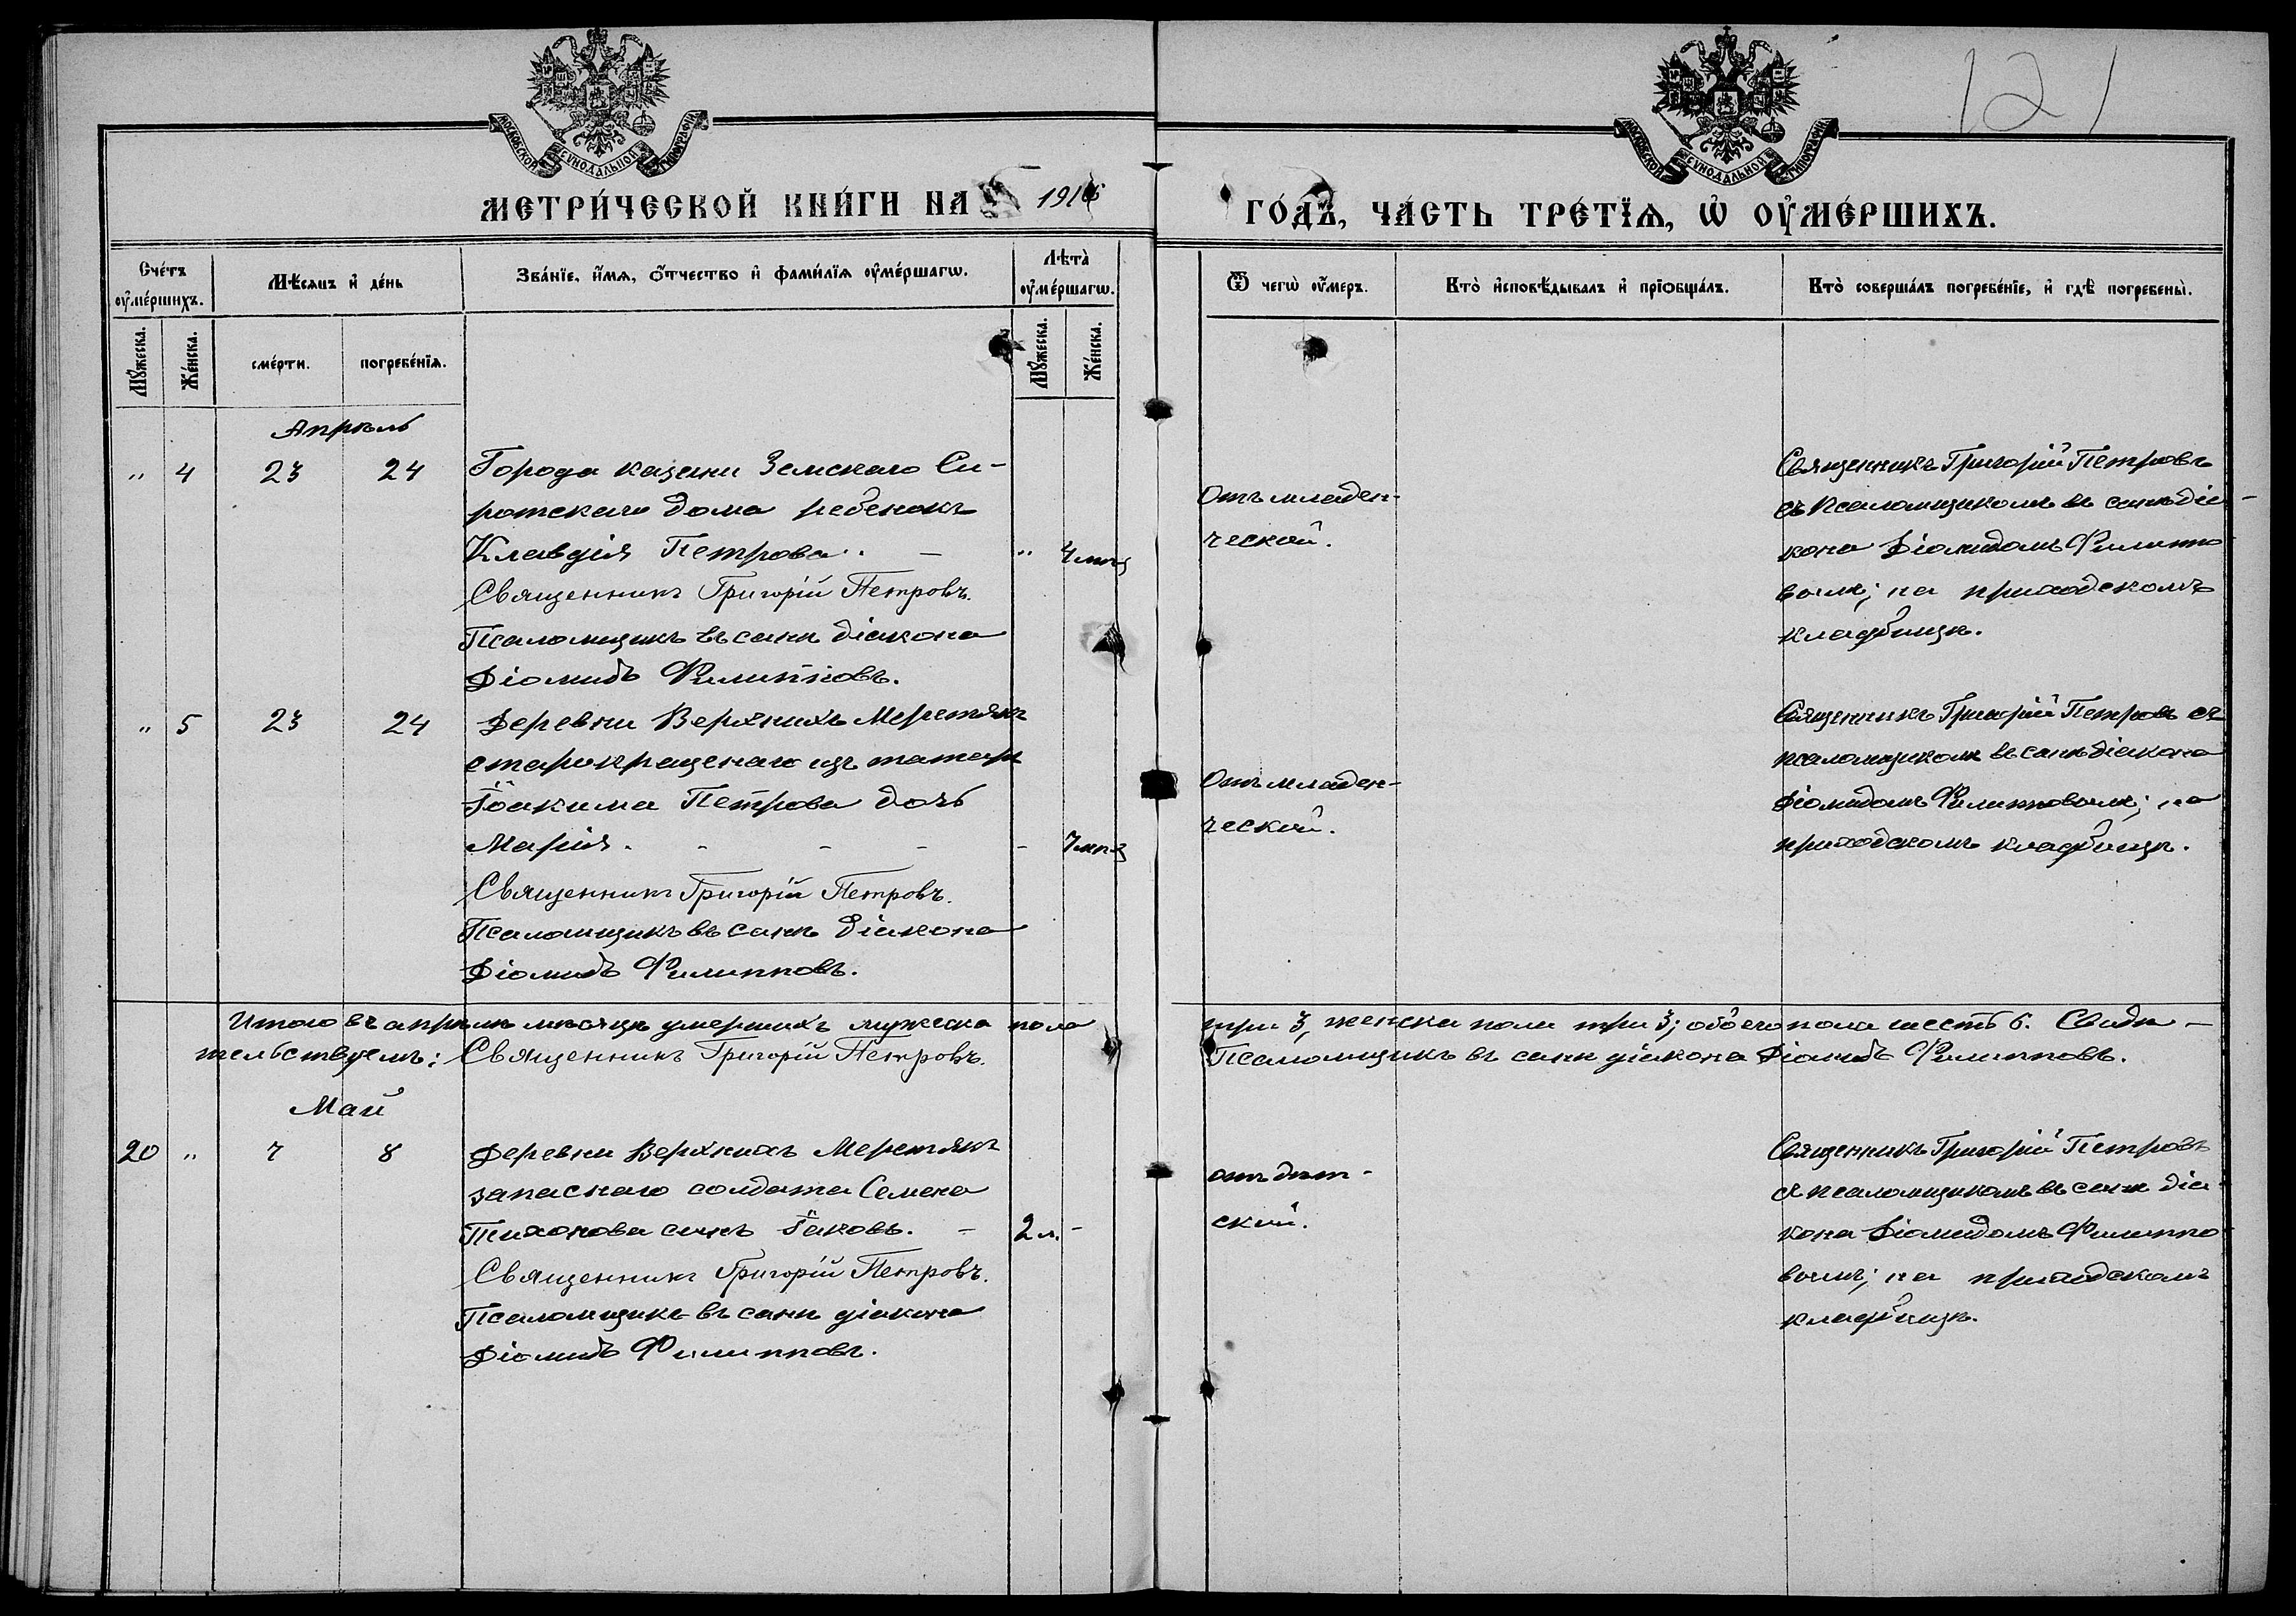 121
МОСКОВСКОЙ СУНОДАЛЬНОЙ ТИПОГРАФІИ
МОСКОВСКОЙ СУНОДАЛЬНОЙ ТИПОГРАФІИ
МЕТРИ́ЧЕСКОЙ КНИ́ГИ НА 1916 ГО́ДЪ, ЧА́СТЬ ТРЕ́ТЇѦ, Ѡ҆ ОУ҆МЕ́РШИХЪ.
Сче́тъ оу҆ме́ршихъ.
Мѣ́сяцъ и҆ де́нь
Зва́нїе, и҆́мя, ѻ҆́тчество и҆ фами́лїя оу҆ме́ршагѡ.
Лѣта̀ оу҆ме́ршагѡ.
Ѿ чегѡ̀ оу҆́меръ.
Кто̀ и҆сповѣ́дывалъ и҆ прїѻбща́лъ.
Кто̀ соверша́лъ погребе́нїе, и҆ гдѣ̀ погребены̀.
Мꙋ́жеска.
Же́нска.
сме́рти.
погребе́нїя.
Мꙋ́жеска.
Же́нска.
Апрѣль
" 4 23 24 Города Казани Земскаго Си-
ротскаго дома ребенокъ
Клавдія Петрова. " 4 мѣс
Священникъ Григорій Петровъ.
Псаломщикъ въ санѣ діакона
Діомидъ Филипповъ.
Отъ младен-
ческой.
Священникъ Григорій Петровъ
съ псаломщикомъ въ санѣ діа-
кона Діомидомъ Филиппо
вымъ; на приходскомъ
кладбищѣ.
" 5 23 24 Деревни Верхнихъ Меретякъ
старокрещенаго изъ татаръ
Іоакима Петрова дочь
Марія. - - - - 7 мѣс
Священникъ Григорій Петровъ.
Псаломщикъ въ санѣ діакона
Діомидъ Филипповъ.
Отъ младен-
ческой.
Священникъ Григорій Петровъ съ
псаломщикомъ въ санѣ діакона
Діомидомъ Филипповымъ; на
приходскомъ кладбищѣ.
Итого въ апрѣлѣ мѣсяцѣ умершихъ мужеска пола три 3, женска пола три 3; обоего пола шесть 6. Свидѣ-
тельствуемъ: Священникъ Григорій Петровъ. Псаломщикъ въ санѣ діакона Діомидъ Филипповъ.
Май
20 " 7 8 Деревни Верхнихъ Меретякъ
запаснаго солдата Семена
Тихонова сынъ Іаковъ. - 2 л. -
Священникъ Григорій Петровъ.
Псаломщикъ въ санѣ діакона
Діомидъ Филипповъ.
отъ дѣт-
ской.
Священникъ Григорій Петровъ
съ псаломщикомъ въ санѣ діа-
кона Діомидомъ Филиппо
вымъ; на приходскомъ
кладбищѣ.